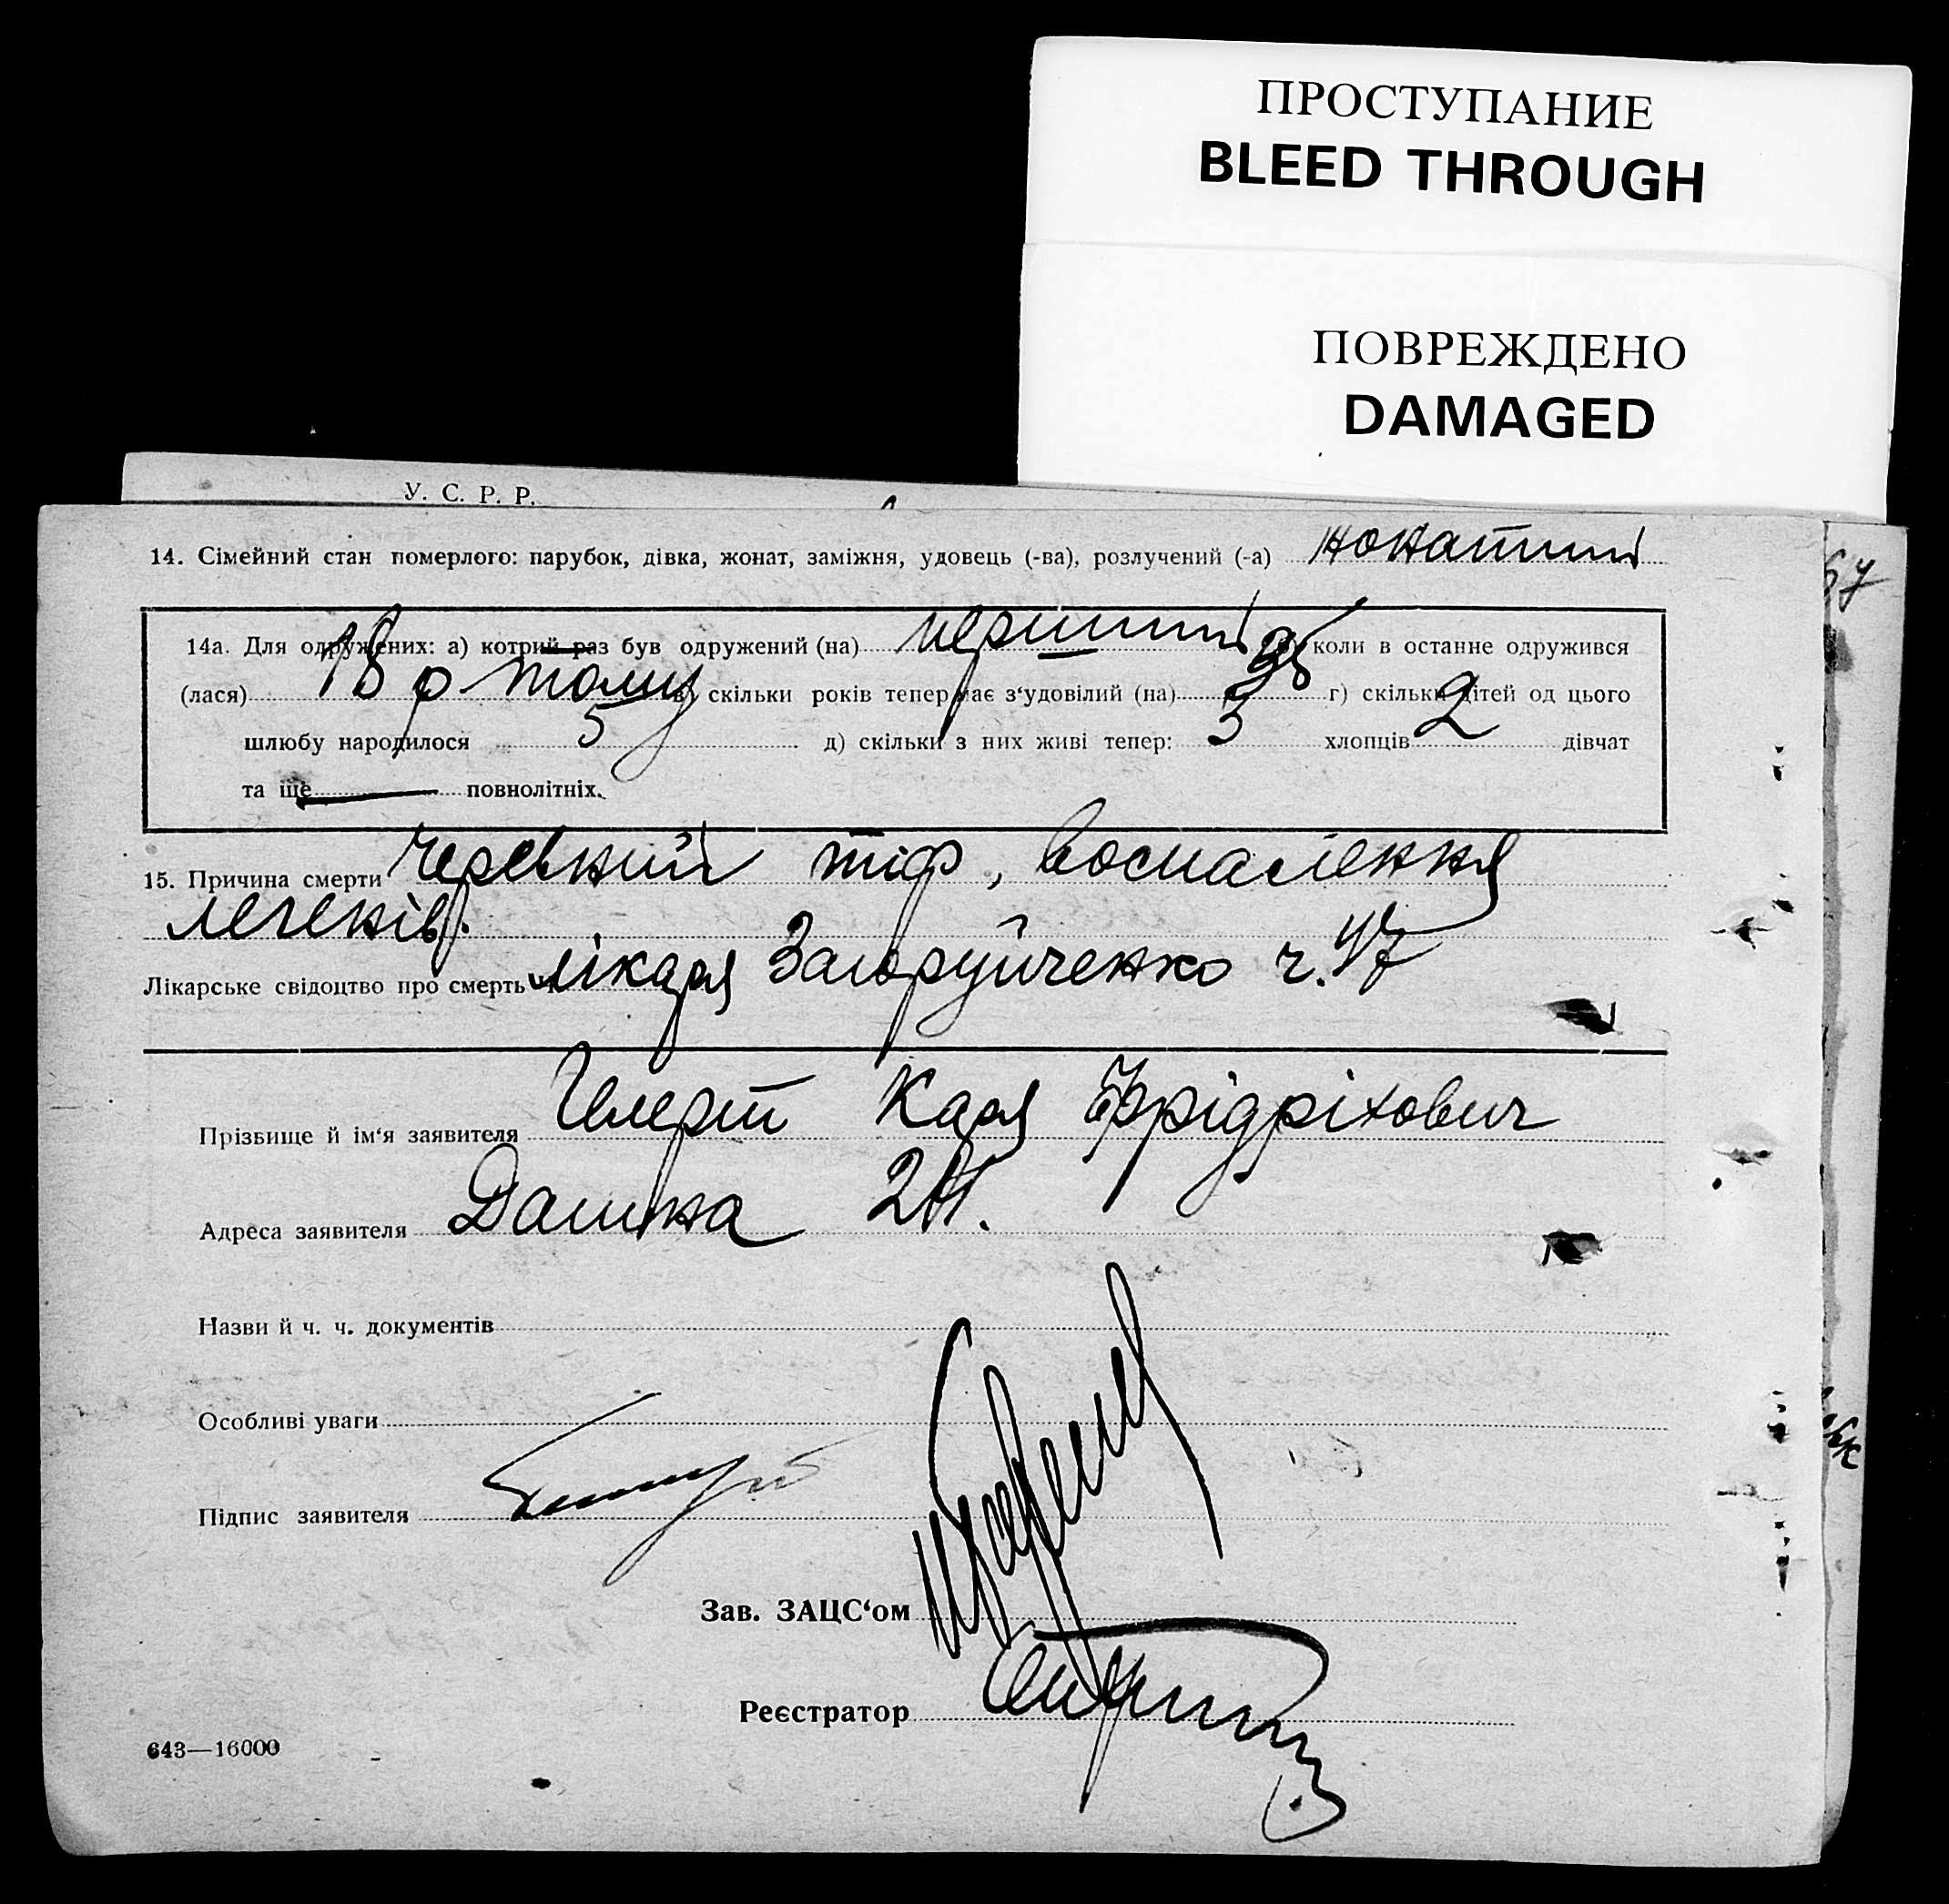 ПРОСТУПАНИЕ
BLEED THROUGH
ПОВРЕЖДЕНО
DAMAGED
У. С. Р. Р.
14. Сімейний стан померлого: парубок, дівка, жонат, заміжня, удовець (-ва), розлучений (-а) жонатий
14а. Для одружених: а) котрий раз був одружений (на) перший коли в останнє одружився
(лася) 18 р тому в) скільки років тепер має з‘удовілий (на) 35 г) скільки дітей од цього
шлюбу народилося 5 д) скільки з них живі тепер: 3 хлопців 2 дівчат
та ще — повнолітніх.
15. Причина смерти Черевний тіф, воспалення
легенів.
Лікарське свідоцтво про смерть лікаря Загоруйченко ч. 47
Прізвище й ім‘я заявителя Карл Фрідріхович
Адреса заявителя
Назви й ч. ч. документів
Особливі уваги
Підпис заявителя
Зав. ЗАЦС‘ом
Реєстратор
643—16000